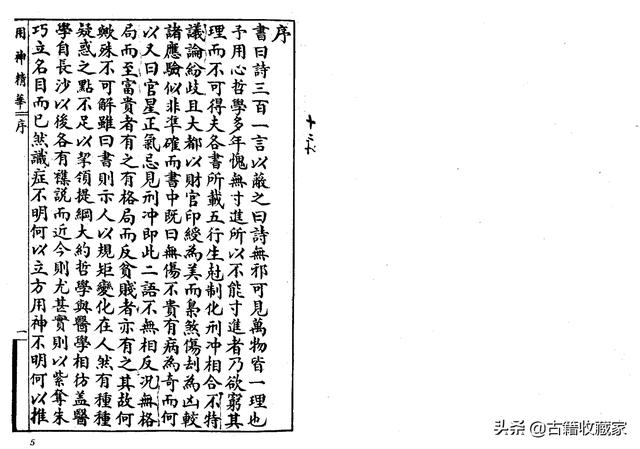 序
書曰詩三百一言以蔽之曰詩無邪可見萬物皆一理也
予用心哲學多年愧無寸進所以不能寸進者乃欲窮其
理而不可得夫各書所載五行生尅制化刑冲相合不特
議論紛歧且大都以財官印綬為美而梟煞傷刦為凶較
諸應驗似非準確而書中既曰無傷不貴有病為奇而何
以又曰官星正氣忌見刑冲即此二語不無相反況無格
局而至富貴者有之有格局而反貧賤者亦有之其故何
歟殊不可解雖曰書則示人以規矩變化在人然有種種
疑惑之點不足以挈領提綱大約哲學與醫學相彷蓋醫
學自長沙以後各有襍說而近今則尤甚實則以紫奪朱
巧立名目而已然識症不明何以立方用神不明何以推
用神精華 序
一
5
头条 @古籍收藏家